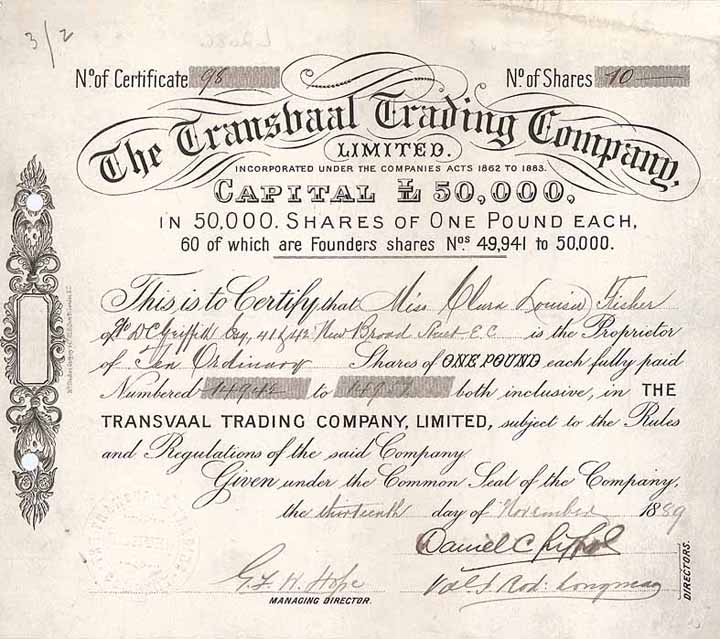 3/2
Nº of Certificate 98
Nº of Shares 10
The Transvaal Trading Company,
LIMITED.
INCORPORATED UNDER THE COMPANIES ACTS 1862 TO 1883.
CAPITAL £ 50,000,
IN 50,000. SHARES OF ONE POUND EACH,
60 of which are Founders shares Nºs 49,941 to 50,000.
This is to Certify that Miss Clara Louisa Fisher
of D C Griffith Esq, 41 & 42 New Broad Street E C is the Proprietor
of Ten Ordinary Shares of ONE POUND each fully paid
Numbered to both inclusive, in THE
TRANSVAAL TRADING COMPANY, LIMITED, subject to the Rules
and Regulations of the said Company.
Given under the Common Seal of the Company,
the thirteenth day of November 1889
Daniel C
G. F. H. Hope
MANAGING DIRECTOR.
DIRECTORS.